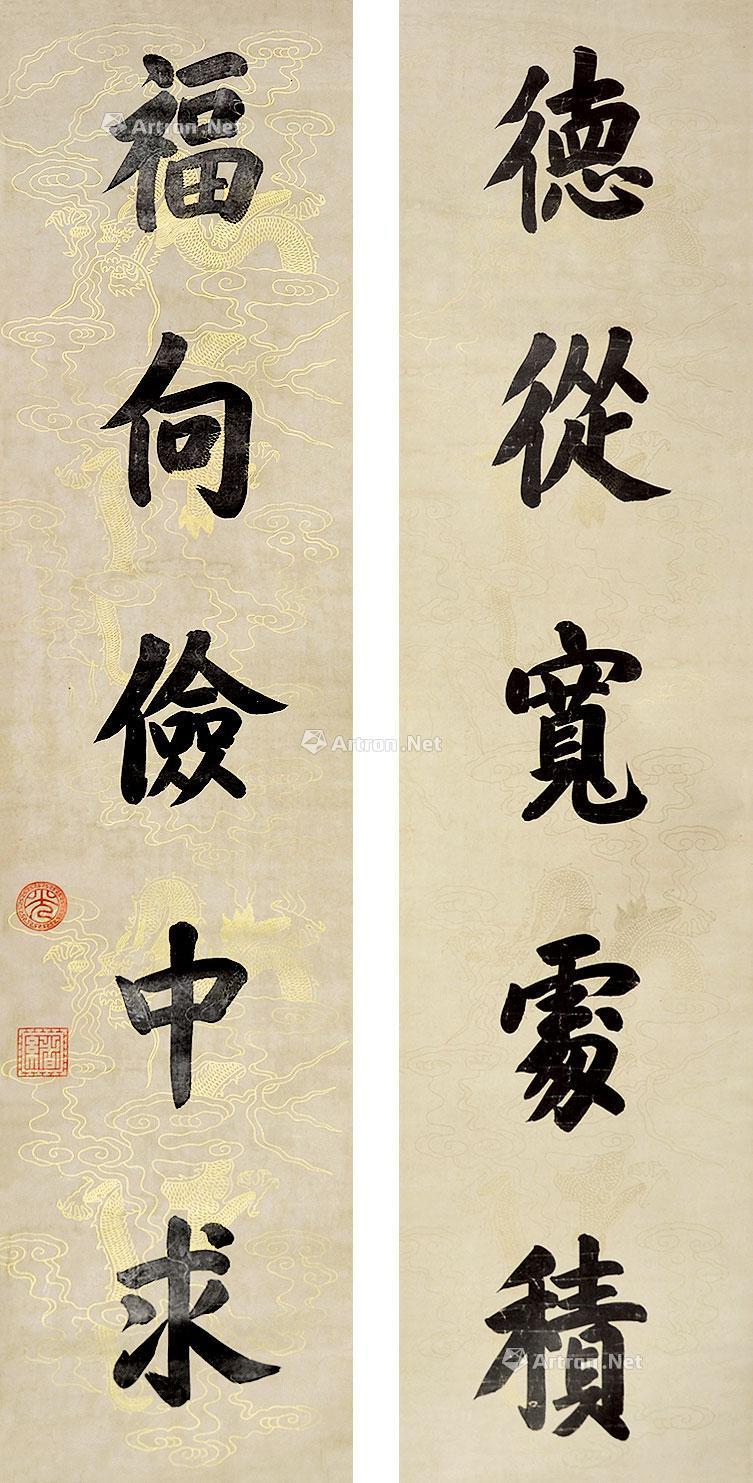 德從寬處積
福向儉中求
Artron.Net
Artron.Net
Artron.Net